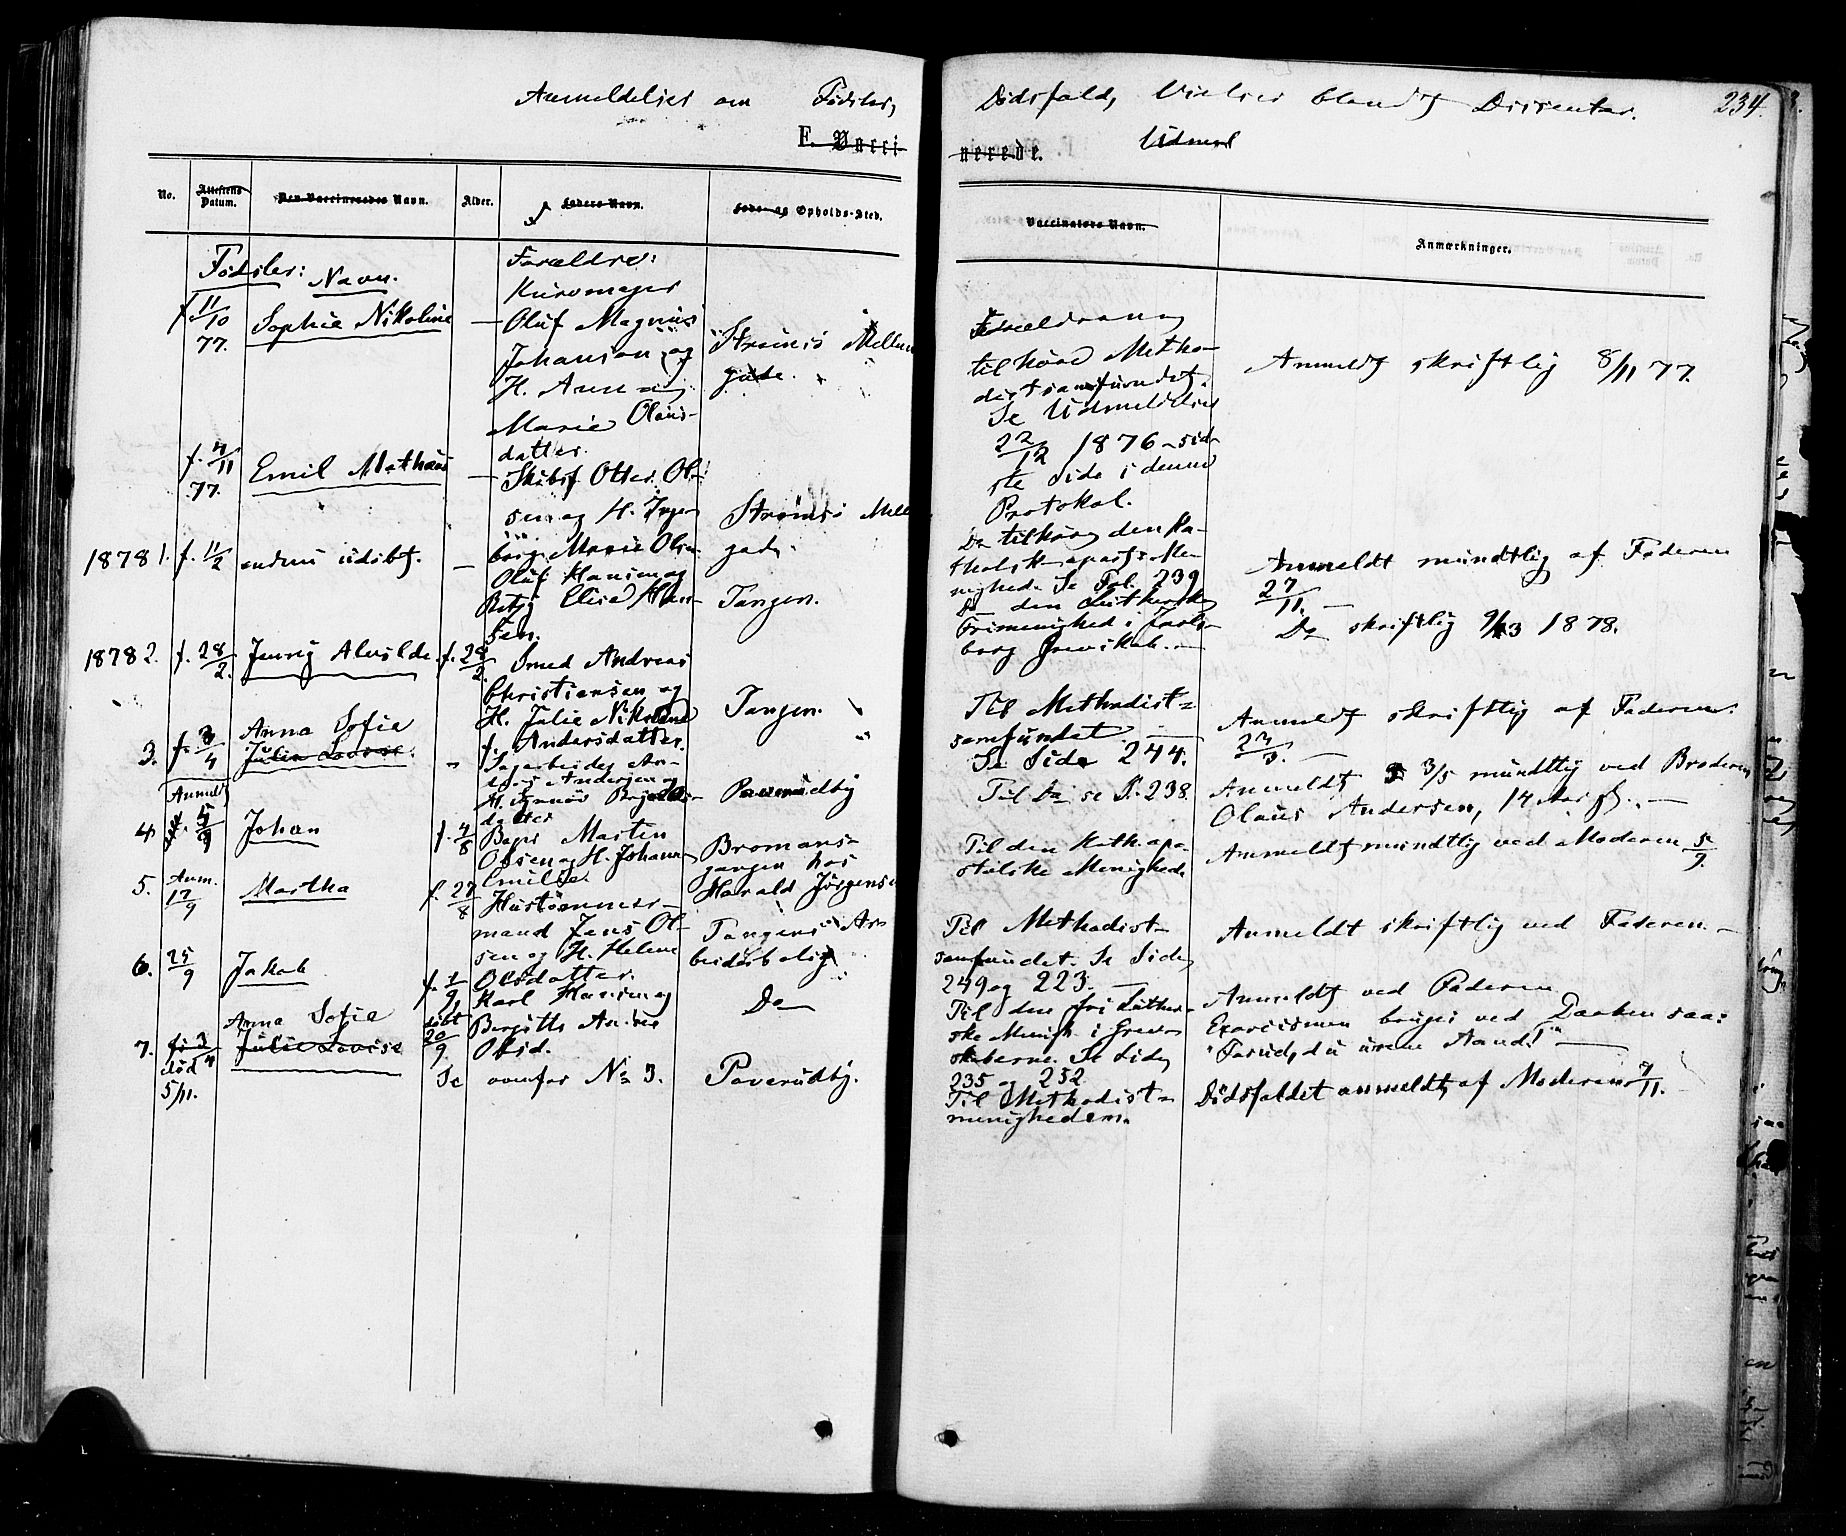 Anmeldelser om Fødsler, Dødsfald, Vielser blandt Dissenter. 234.
F. Vacci-nerede. Udmel
No.
Attestens Datum.
Den Vaccineredes Navn.
Alder.
Faders Navn.
Føde- og Opholds-Sted.
Vaccinators Navn.
Anmærkninger.
Fødsler: Navn.
Forældre:
f. 11/10 77.
Sophie Nikoline
—
Buntmager
Oluf Magnus
Johansen og
H. Anne
Marie Olaus-
datter.
Strømsø Mellem
gade.
Forældrene
tilhøre Metho-
distsamfundet.
Se Udmeldelser
22/12 1876 - sid-
ste Side i denne
Protokol.
Anmeldt skriftlig 8/11 77.
f. 4/11 77.
Emil Mathæus
—
Skibsf Otter Ol-
sen og H. Inge-
borg Marie Olsen
Strømsø Mell
gade.
De tilhøre den ka-
tholsk apost. Me-
nighed. Se Fol. 239
Anmeldt mundtlig af Faderen
27/11. —
1878 1. f. 11/2
endnu udøbt.
—
Oluf Hansen og
Betzy Elise Han-
sen.
Tangen.
De den Lutherske
Frimenighed i Jarls-
berg Grevskab. —
Do skriftlig 9/3 1878.
1878 2. f. 28/2.
Jenny Alvilde.
f. 28/2.
Smed Andreas
Christiansen og
H. Julie Nikoline
f. Andersdatter.
Tangen.
Til Methodist=
samfundet. —
Se Side 244.
Anmeldt skriftlig af Faderen.
23/3. —
3. f. 3/4
Anna Sofie
Julie Lovise.
"
Sagarbeider An-
ders Andersen og
H. Synnøv Børjes-
datter
Paverudby
Til Do se S. 238.
Anmeldt 3/5 mundtlig ved Broderen
Olaus Andersen, 14 Aar gl. —
4. Anmeldt 5/9
Johan
f. 4/8
Bager Martin
Olsen og H. Johanne
Emilie.
Bromans-
gangen hos
Harald Jørgensen
Til den Kath. apo-
stolske Menighed.
Anmeldt mundtlig ved Moderen 5/9.
5. Anm. 17/9
Martha
f. 27/8
Hustømmer-
mand Jens Ol-
sen og H. Helene
Olsdatter.
Tangens Ar-
beiderbolig
Til Methodist-
samfundet. Se Side
249 og 223. —
Anmeldt skriftlig ved Faderen. —
6. 25/9
Jakob
f. 1/9,
døbt 20/9
Karl Hansen og
Bergitte Andrea
Olsd.
Do
Til den fri Luther-
ske Menigh. i Grev-
skaberne. Se Side
235 og 252
Anmeldt ved Faderen
Exorcismen bruges ved Daaben saa:
"Farud, du urene Aand!" —
7. f. 3/4
død 5/11.
Anna Sofie
Julie Lovise
Se ovenfor No 3.
Paverudby.
Til Methodist-
menigheden.
Dødsfaldet anmeldt af Moderen 7/11.